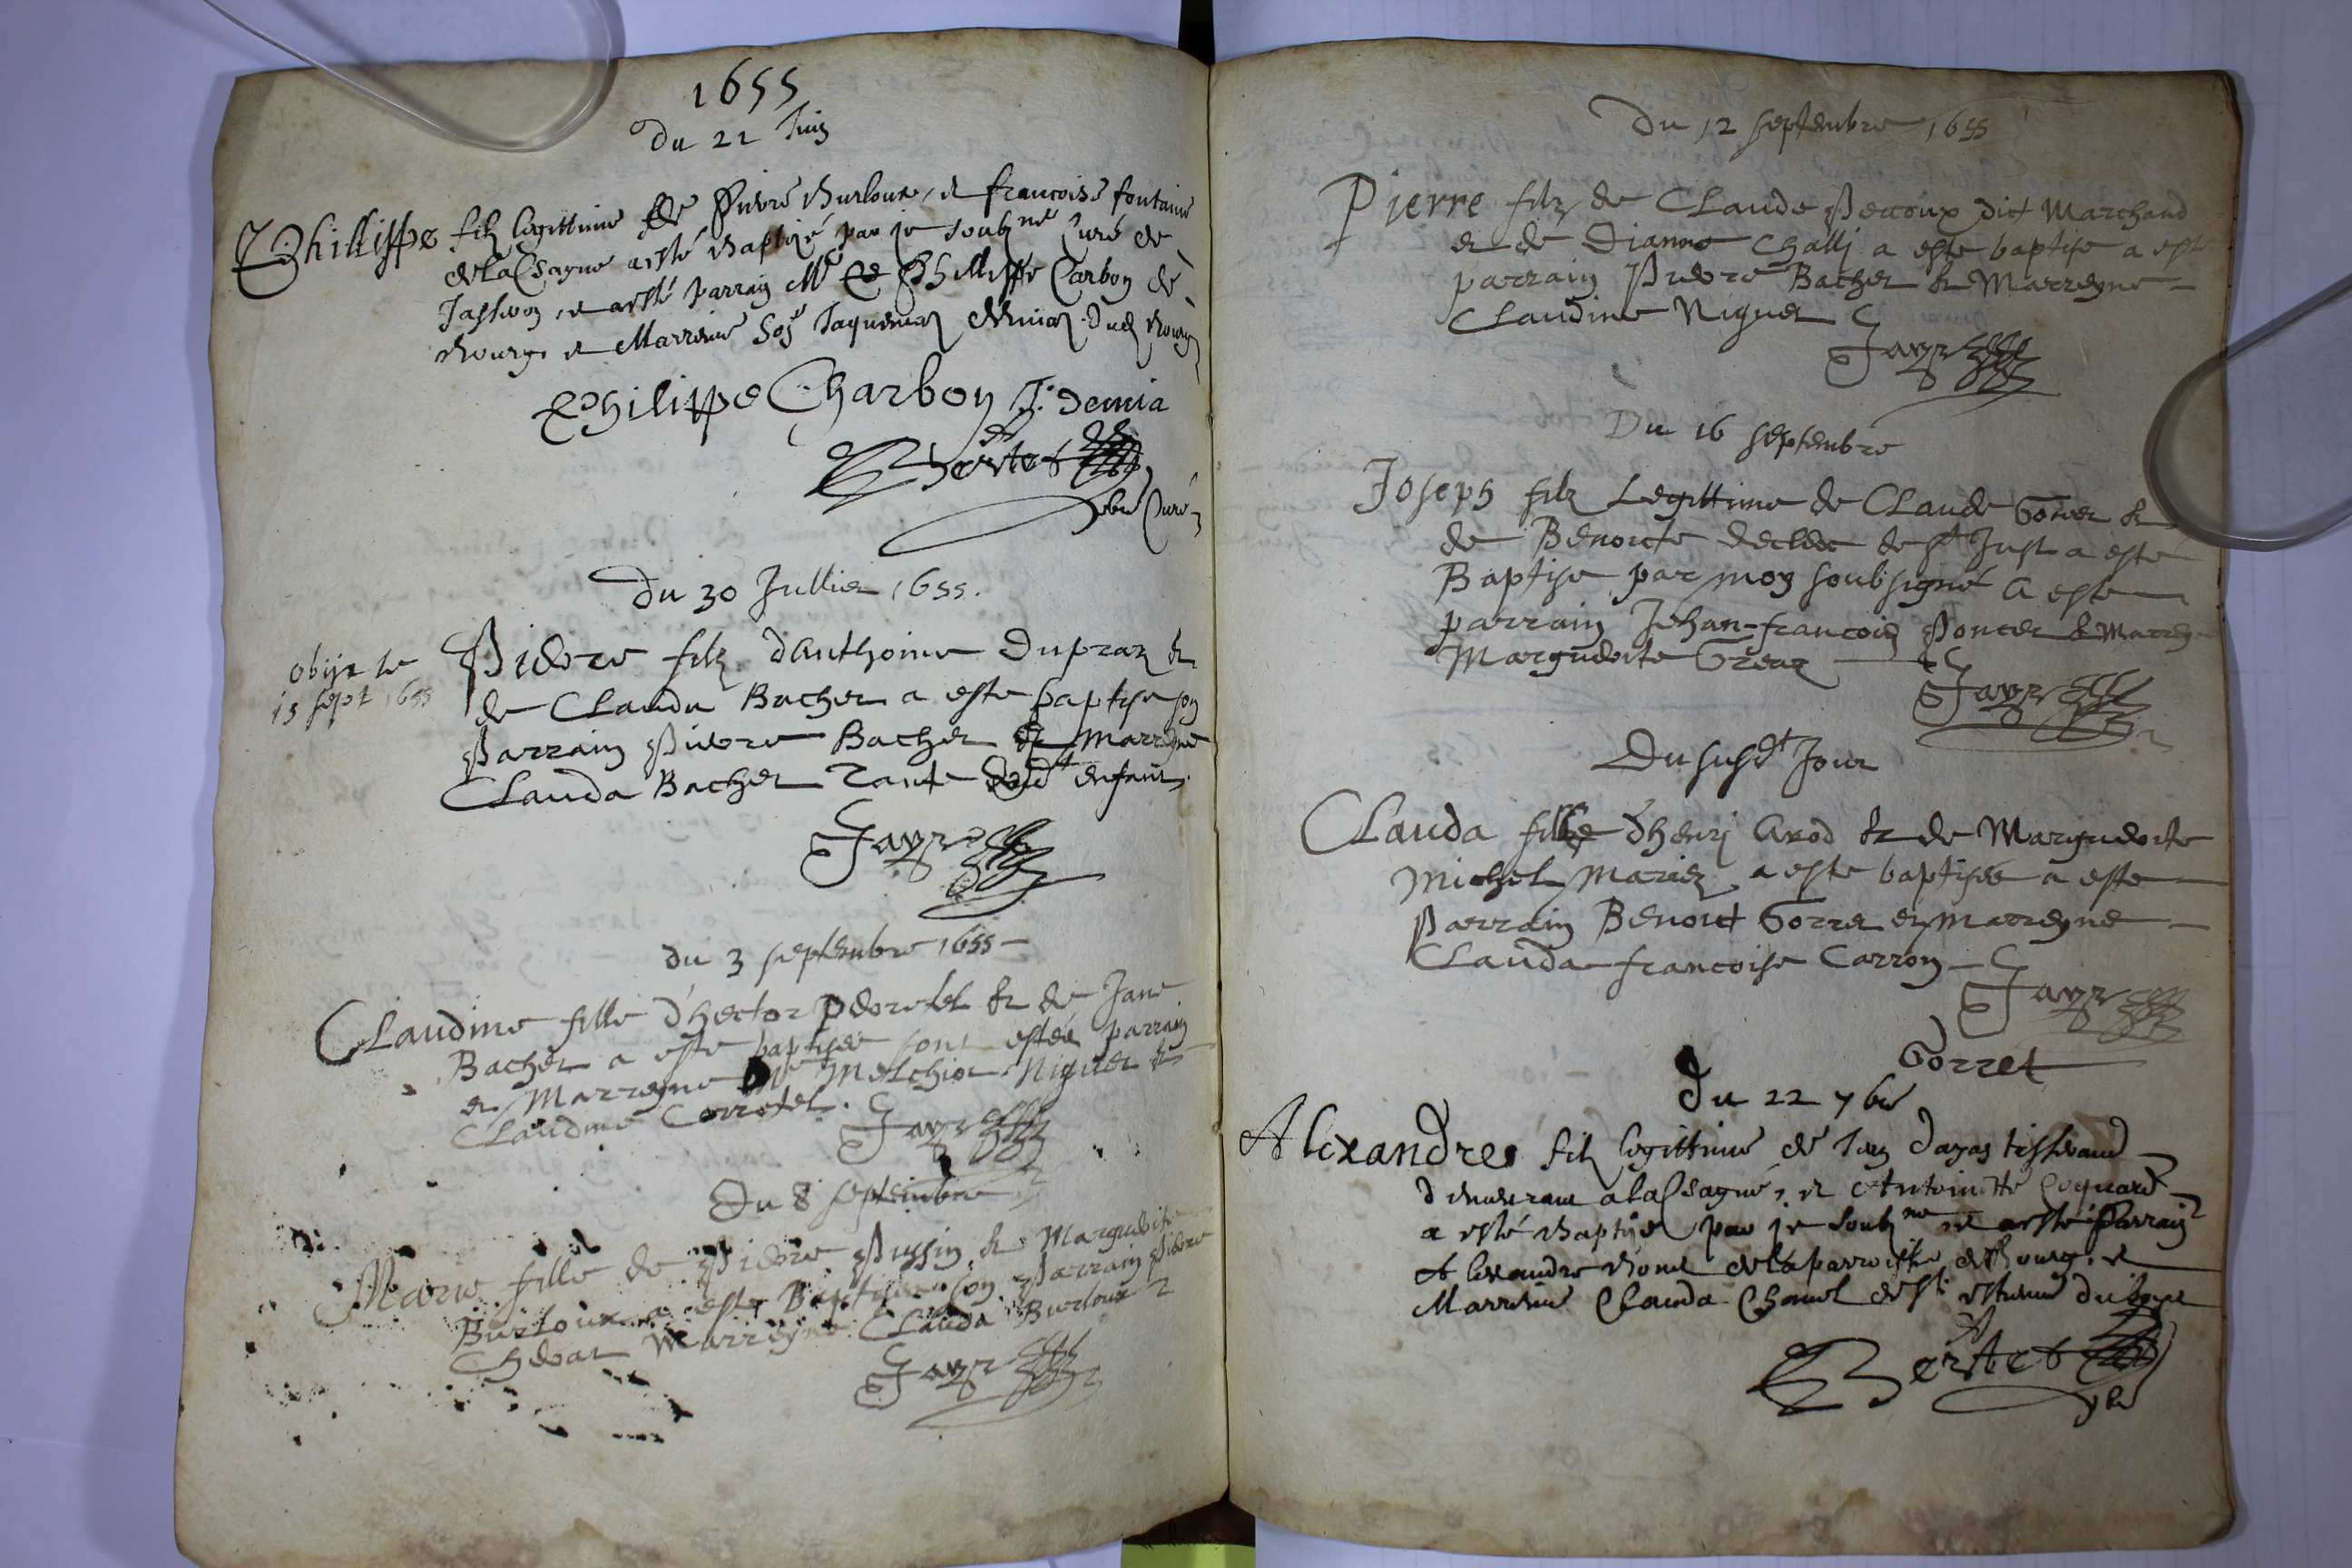 1655
Du 22 Juin
Philippe filz legittime de Pierre Burloux, et francoise fontaine
de la Chagne a esté Baptizé par je soubz.né Curé de
Jasseron, et a esté parrain M.e Phillippe Carbon de
Bourg, et Marreine Jaquema Demia dud Bourg
Philippe Charbon J. Demia
Bertet
pbr Curé
Du 30 Jullier 1655.
obijt le
15 sept 1655
Pierre filz d'Anthoine Dupraz &
de Clauda Bacher a este baptise son
Parrain Pierre Bacher & Marreyne
Clauda Bacher Tante dud.t enfant
Jayr
du 3 septembre 1655
Claudine fille d'hector perretel & de Jane
Bacher a este baptisee sont estés parrain
et Marreyne M.e Melchior Niguet &
Claudine Corretel.
Jayr
Du 8 septembre
Marie fille de Pierre Pussin & Marguerite
Burloux a este Baptisee son Parrain Pierre
Chevat Marreyne Clauda Burloux
Jayr
Du 12 septembre 1655
Pierre filz de Claude Perroux dict Marchand
et de Dianne Challj a este baptise a este
parrain Pierre Bacher & Marreyne
Claudine Niguet
Jayr
Du 16 septembre
Joseph filz Legittime de Claude Gorret &
de Benoite de St Just a esté
Baptise par moy soubsigné a este
parrain Jehan-francois Poncet & Marreyne
Marguerite Greaz
Jayr
Du susd.t Jour
Clauda fille d'henrj Arod & de Marguerite
Michel Mariez a este baptisee a este
Parrain Benoict Gorret et Marreyne
Clauda francoise Carron
Jayr
Gorret
Du 22 7bre
Alexandre filz legittime de Jan Dagas tisserand
demeurant a la Chagne, et Antoinette Coquard
a esté Baptizé par je soubz.né et a esté Parrain
Alexandre de la parroisse de Bourg, et
Marreine Clauda Chanel de St Estienne du bois
Bertet
pbr